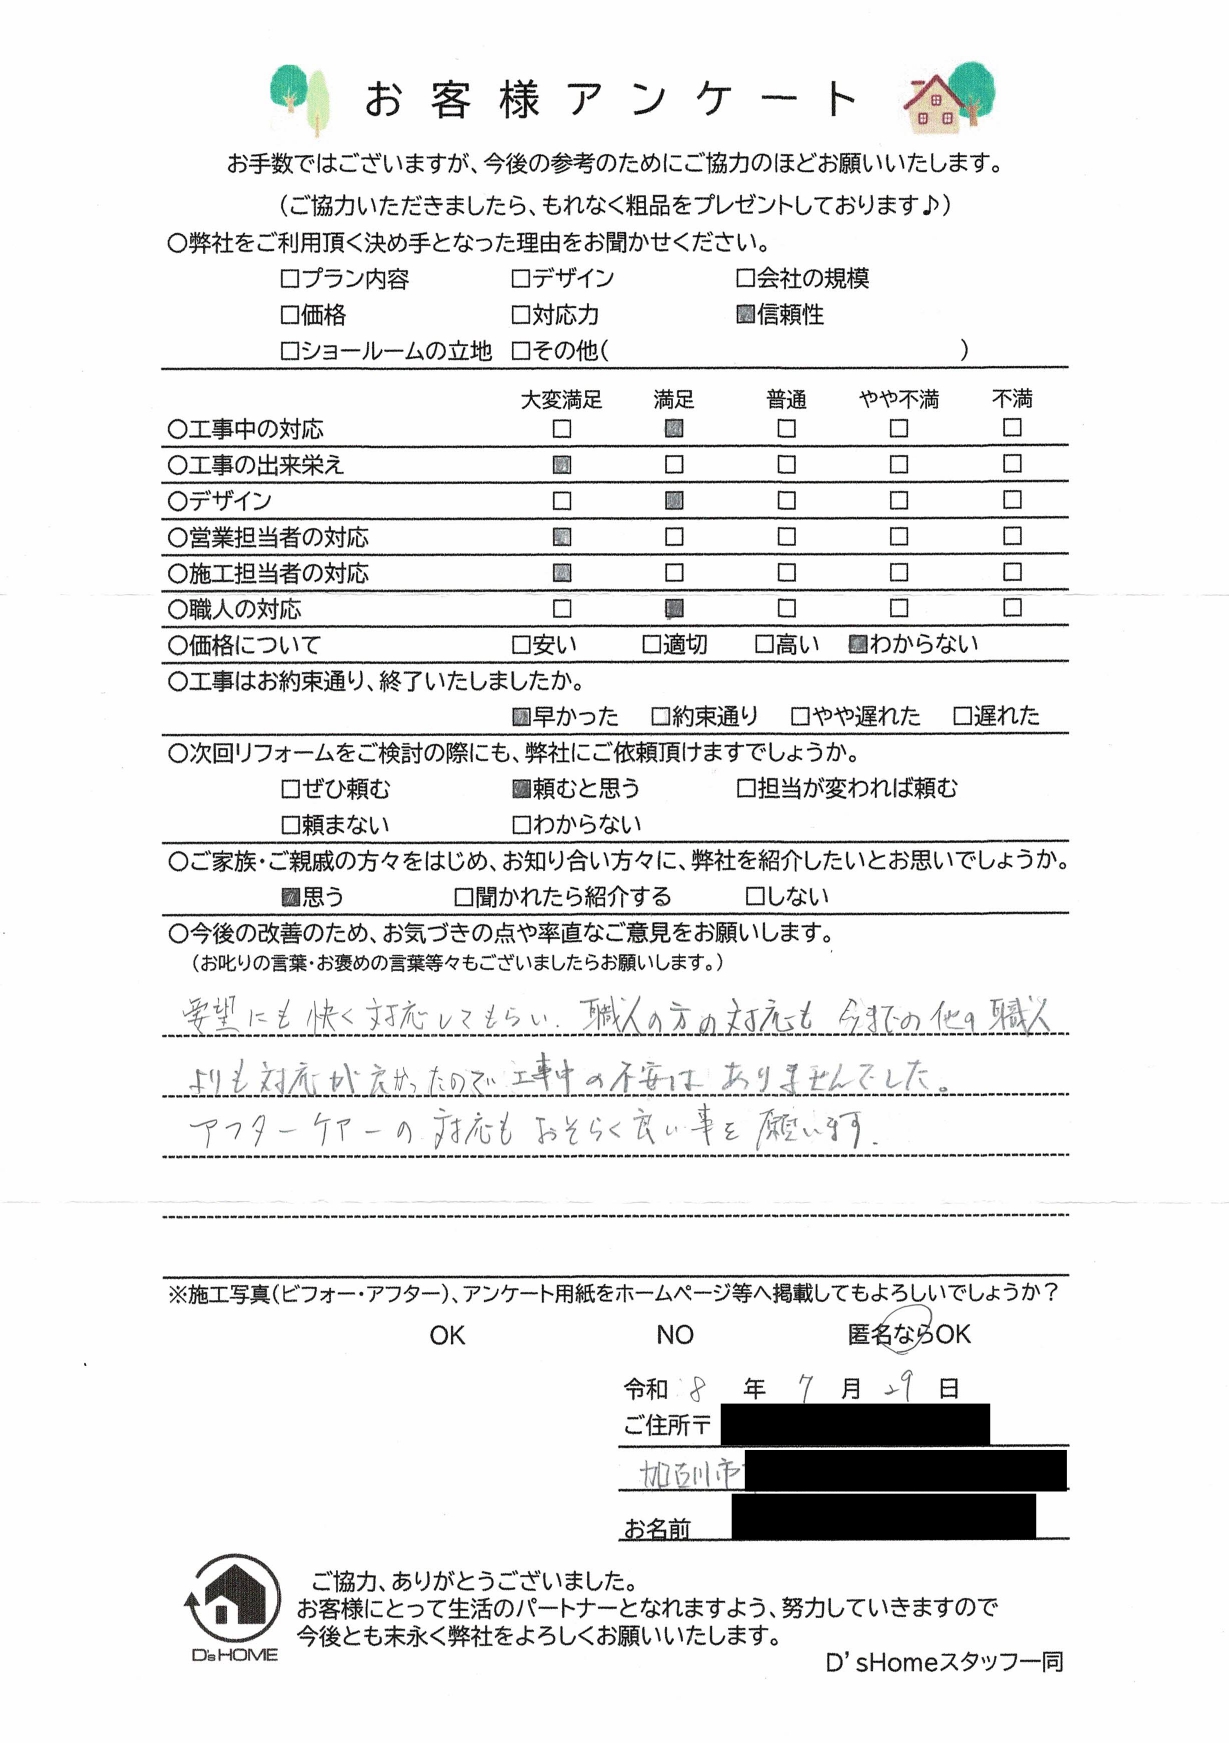 お客様アンケート
お手数ではございますが、今後の参考のためにご協力のほどお願いいたします。
（ご協力いただきましたら、もれなく粗品をプレゼントしております♪）
○弊社をご利用頂く決め手となった理由をお聞かせください。
□プラン内容 □デザイン □会社の規模
□価格 □対応力 ■信頼性
□ショールームの立地 □その他( )
大変満足 満足 普通 やや不満 不満
○工事中の対応 □ ■ □ □ □
○工事の出来栄え ■ □ □ □ □
○デザイン □ ■ □ □ □
○営業担当者の対応 ■ □ □ □ □
○施工担当者の対応 ■ □ □ □ □
○職人の対応 □ ■ □ □ □
○価格について □安い □適切 □高い ■わからない
○工事はお約束通り、終了いたしましたか。
■早かった □約束通り □やや遅れた □遅れた
○次回リフォームをご検討の際にも、弊社にご依頼頂けますでしょうか。
□ぜひ頼む ■頼むと思う □担当が変われば頼む
□頼まない □わからない
○ご家族・ご親戚の方々をはじめ、お知り合い方々に、弊社を紹介したいとお思いでしょうか。
■思う □聞かれたら紹介する □しない
○今後の改善のため、お気づきの点や率直なご意見をお願いします。
（お叱りの言葉・お褒めの言葉等々もございましたらお願いします。）
要望にも快く対応してもらい、職人の方の対応も今までの他の職人
よりも対応が良かったので工事中の不安はありませんでした。
アフターケアーの対応もおそらく良い事を願います。
※施工写真（ビフォー・アフター）、アンケート用紙をホームページ等へ掲載してもよろしいでしょうか？
OK NO 匿名ならOK
令和 8 年 7 月 29 日
ご住所〒
加古川市
お名前
ご協力、ありがとうございました。
お客様にとって生活のパートナーとなれますよう、努力していきますので
今後とも末永く弊社をよろしくお願いいたします。
D's HOME
D'sHomeスタッフ一同